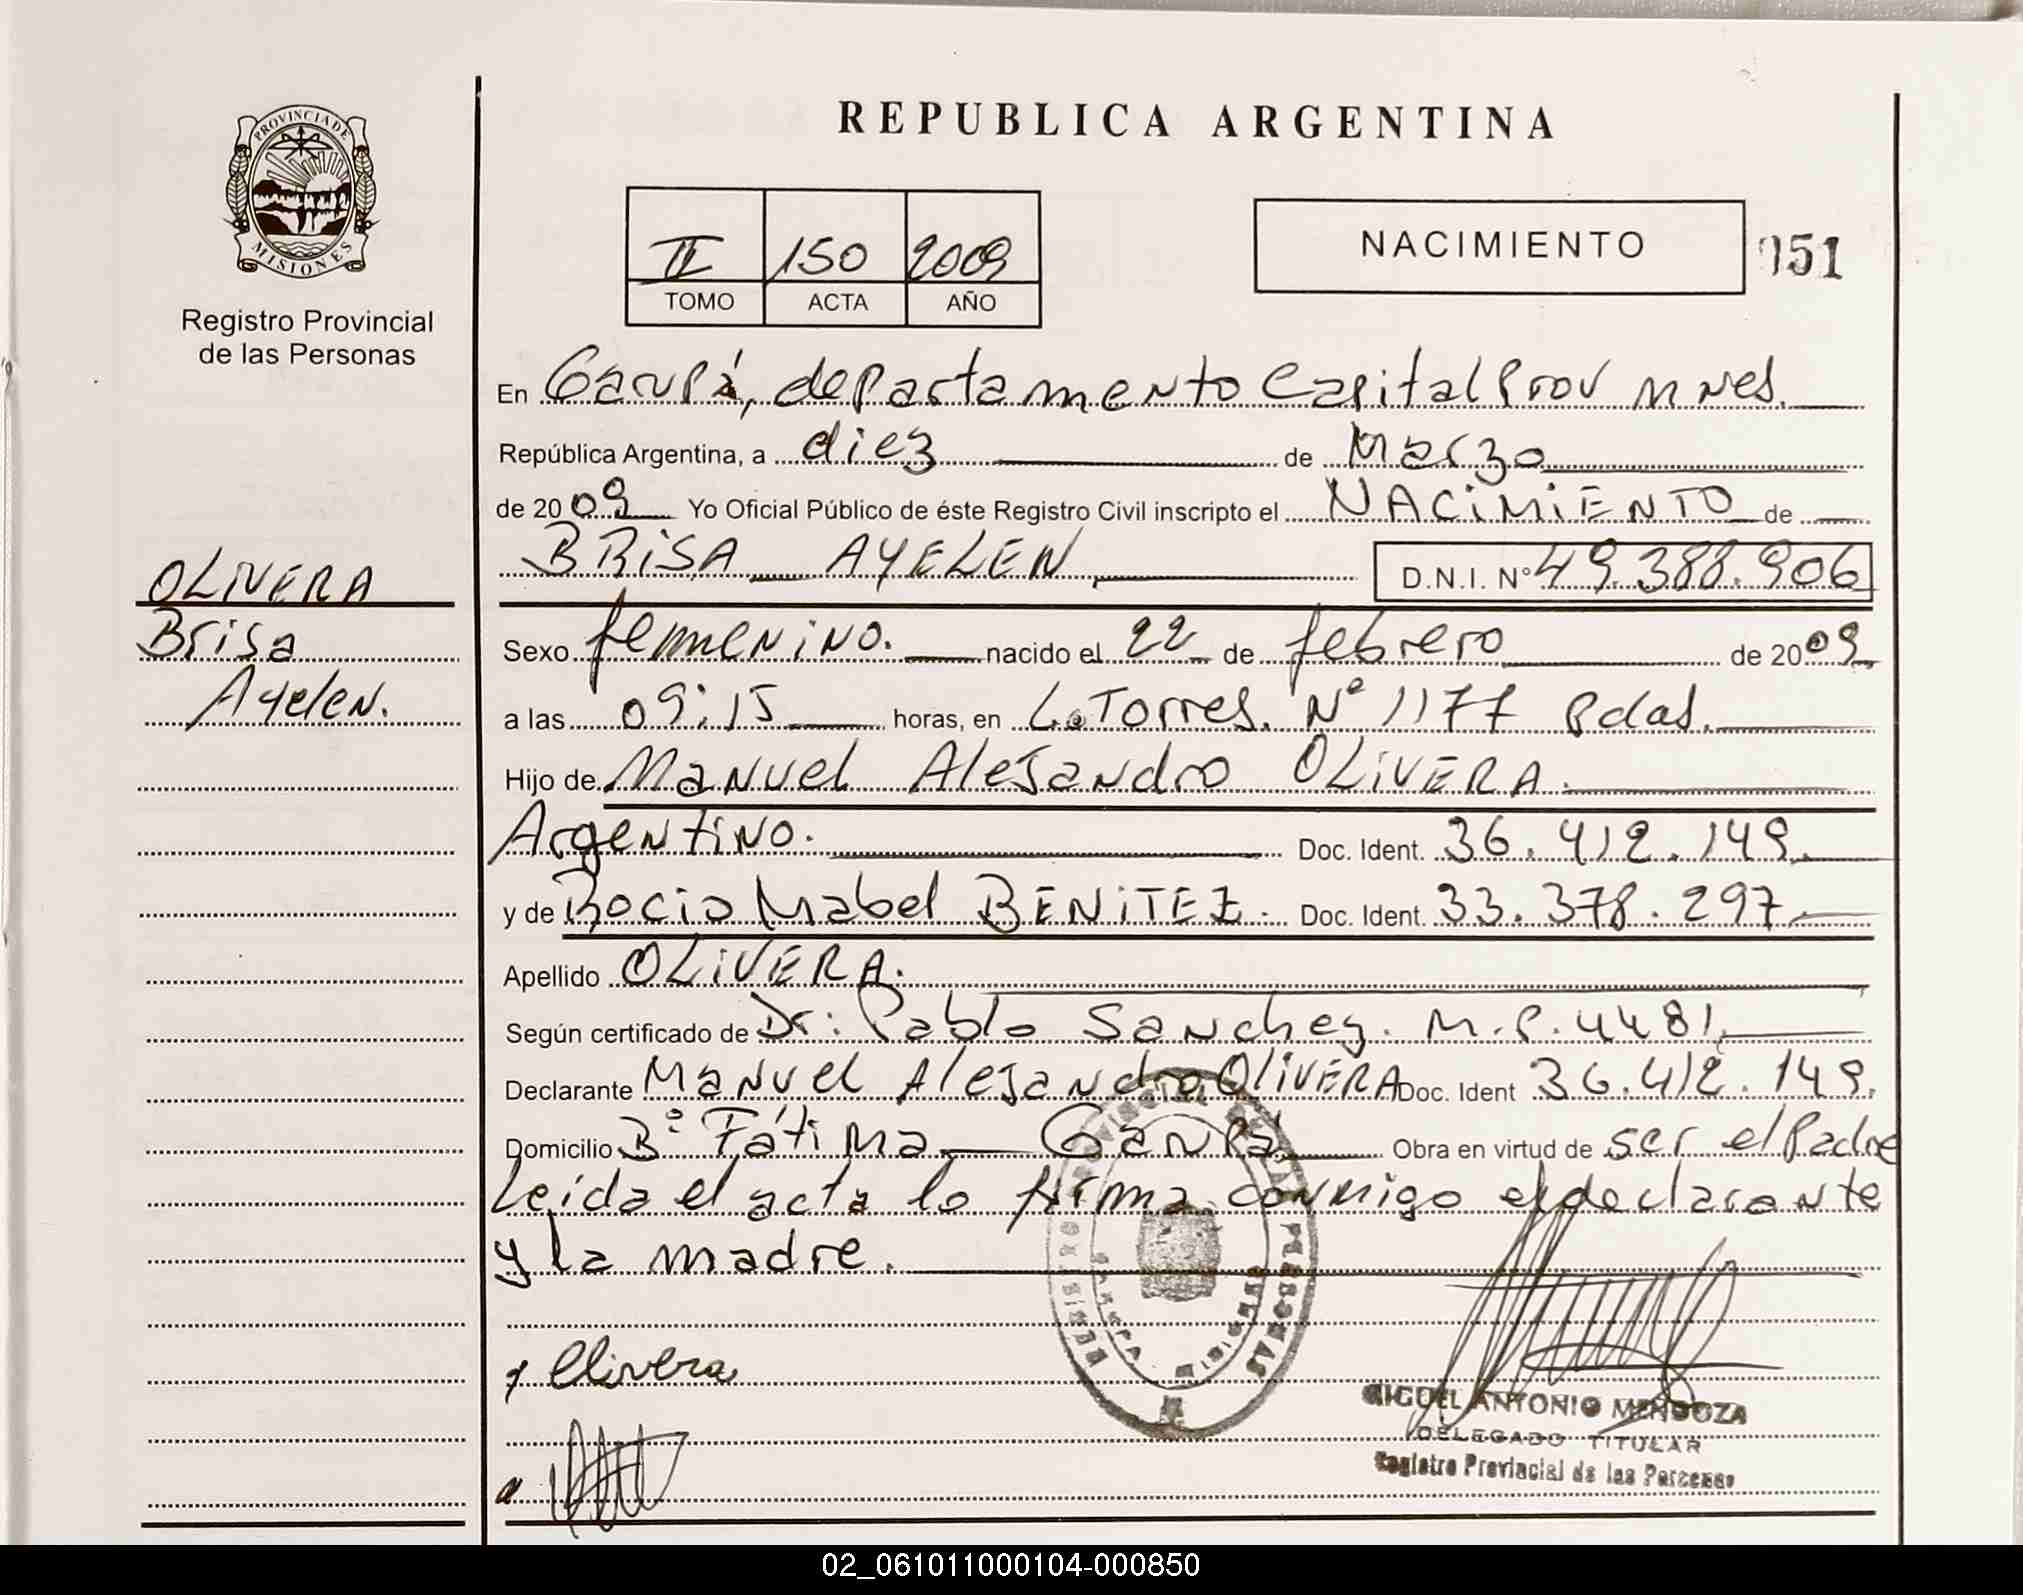 REPUBLICA ARGENTINA
PROVINCIA DE
MISIONES
Registro Provincial
de las Personas
II 150 2009
TOMO ACTA AÑO
NACIMIENTO
151
En Garupá, departamento Capital Prov Mnes.
República Argentina, a diez de Marzo
de 2009 Yo Oficial Público de éste Registro Civil inscripto el NACIMIENTO de
BRISA AYELEN D.N.I. Nº 49.388.906
OLIVERA
Brisa
Ayelen.
Sexo femenino. nacido el 22 de febrero de 2009
a las 09:15 horas, en L. Torres. Nº 1177 Pdas.
Hijo de Manuel Alejandro OLIVERA.
Argentino. Doc. Ident. 36.412.149.
y de Rocio Mabel BENITEZ. Doc. Ident. 33.378.297.
Apellido OLIVERA.
Según certificado de Dr: Pablo Sanchez. M.P. 4481.
Declarante Manuel Alejandro OLIVERA Doc. Ident 36.412.149.
Domicilio Bº Fátima Garupá. Obra en virtud de ser el Padre
Leida el acta lo firma conmigo el declarante
y la madre.
Olivera
REGISTRO PROVINCIAL DE LAS PERSONAS
MIGUEL ANTONIO MENDOZA
DELEGADO TITULAR
Registro Provincial de las Personas
02_061011000104-000850